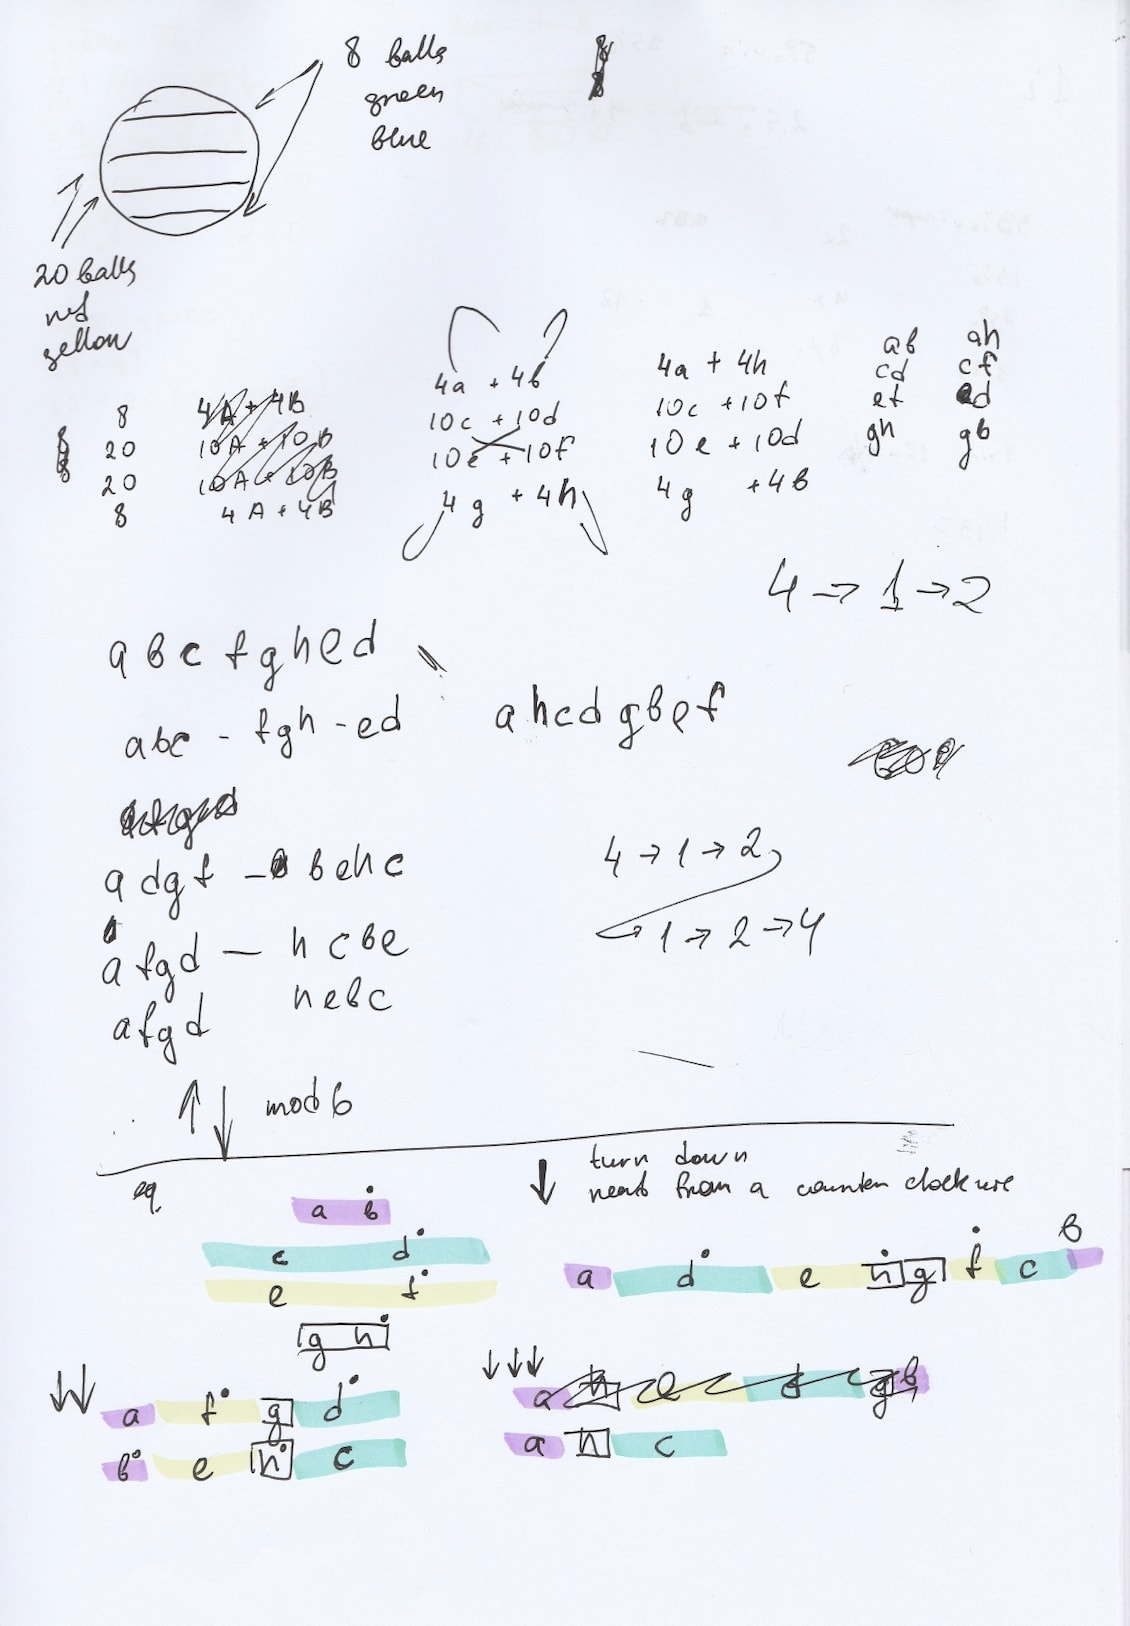 8 balls
green
blue
20 balls
red
yellow
8 4A + 4B
20 10A + 10B
20 10A + 10B
8 4A + 4B
4a + 4b
10c + 10d
10e + 10f
4g + 4h
4a + 4h
10c + 10f
10e + 10d
4g + 4b
ab
cd
ef
gh
ah
cf
ed
gb
4 → 1 → 2
a b c f g h e d
abc - fgh - ed
a h c d g b e f
a d g f - b e h c
a f g d - h c b e
a f g d h e b c
4 → 1 → 2
→ 1 → 2 → 4
↑ ↓ mod 6
eq.
a b
c d
e f
g h
↓ turn down
next from a counter clockwise
a d e h g f c b
↓↓ a f g d
b e h c
↓↓↓ a h e d g b
a h c